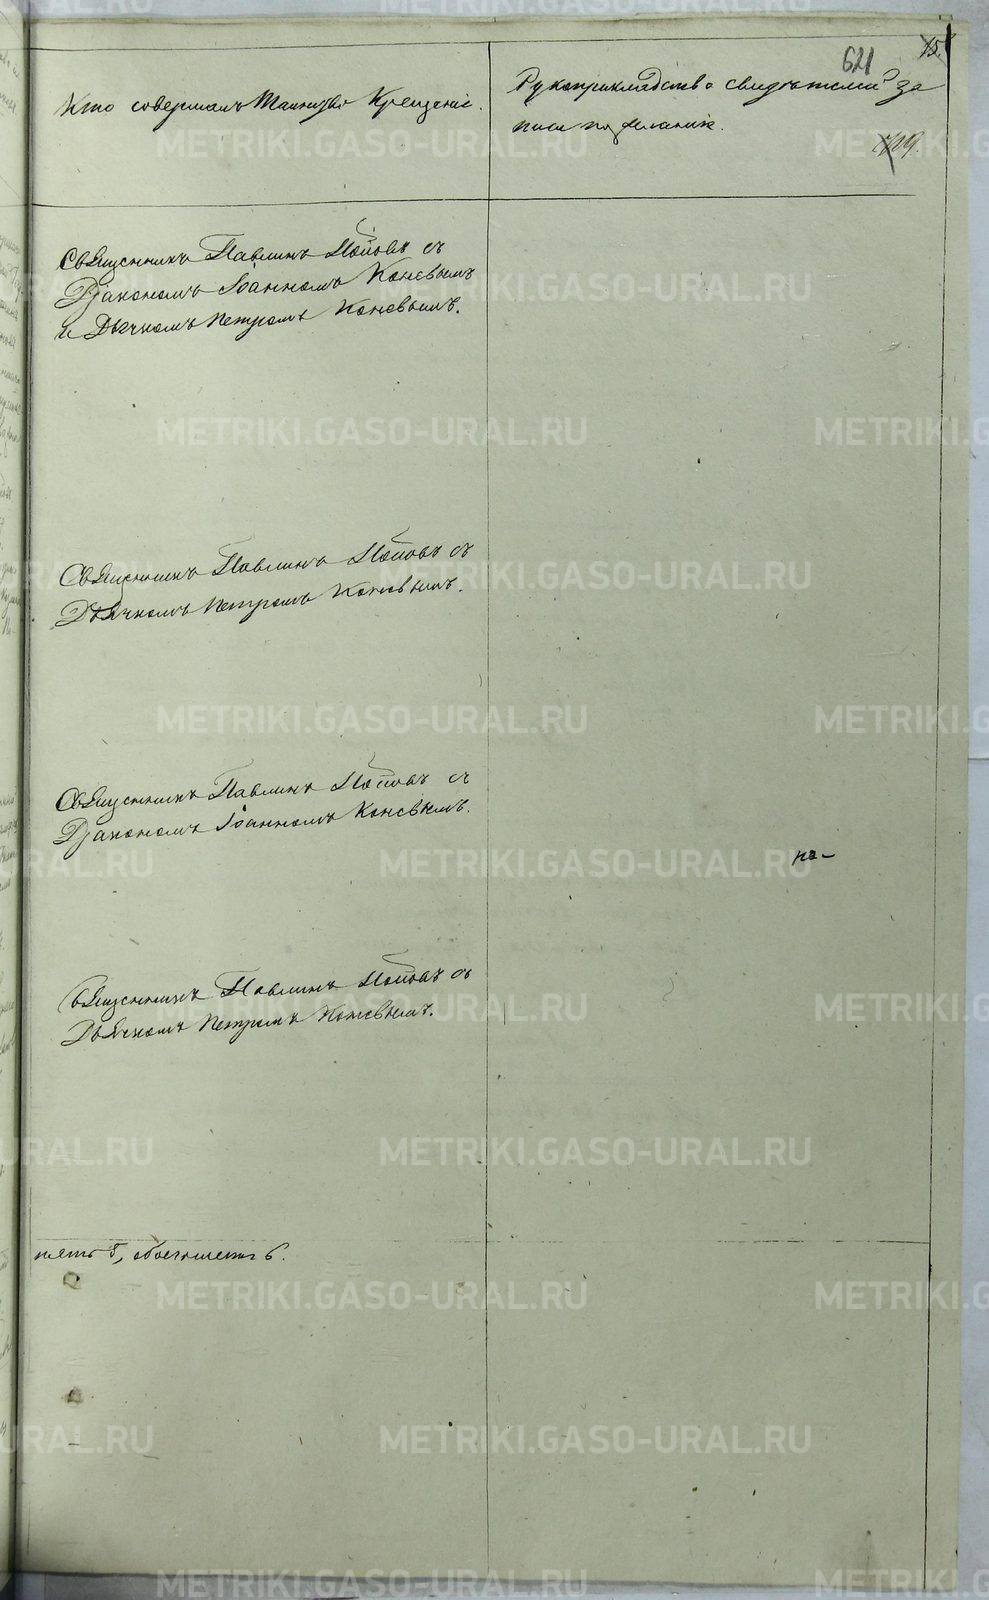 15.
621
729.
Кто совершалъ Таинство Крещенія.
Рукоприкладство свидѣтелей за
писи по желанію.
Священникъ Павлинъ Поповъ съ
Діакономъ Іоанномъ Коневымъ
и Дьячкомъ Петромъ Коневымъ.
Священникъ Павлинъ Поповъ съ
Дьячкомъ Петромъ Коневымъ.
Священникъ Павлинъ Поповъ съ
Діакономъ Іоанномъ Коневымъ.
на-
Священникъ Павлинъ Поповъ съ
Дьячкомъ Петромъ Коневымъ.
пять 5, обоего 6.
METRIKI.GASO-URAL.RU